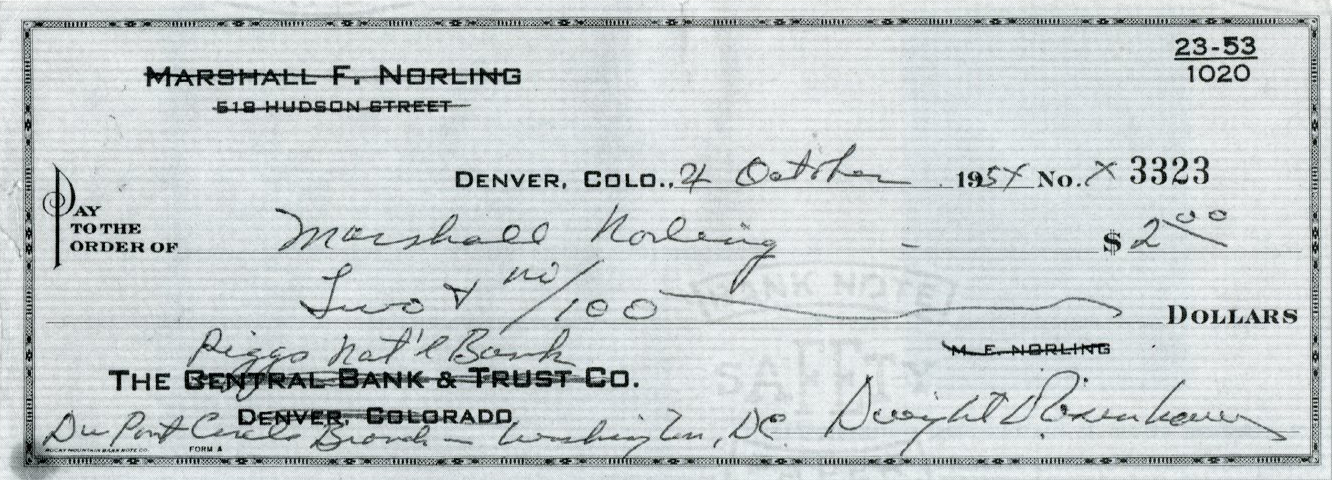 23-53
1020
MARSHALL F. NORLING
518 HUDSON STREET
DENVER, COLO., 4 October 1954 No. X 3323
PAY TO THE ORDER OF Marshall Norling - $ 2 00
Two & no/100 DOLLARS
Riggs Nat'l Bank
M. F. NORLING
THE CENTRAL BANK & TRUST CO.
DENVER, COLORADO
Du Pont Circle Branch - Washington, DC. Dwight D Eisenhower
ROCKY MOUNTAIN BANK NOTE CO. FORM A
BANK NOTE
SAFETY